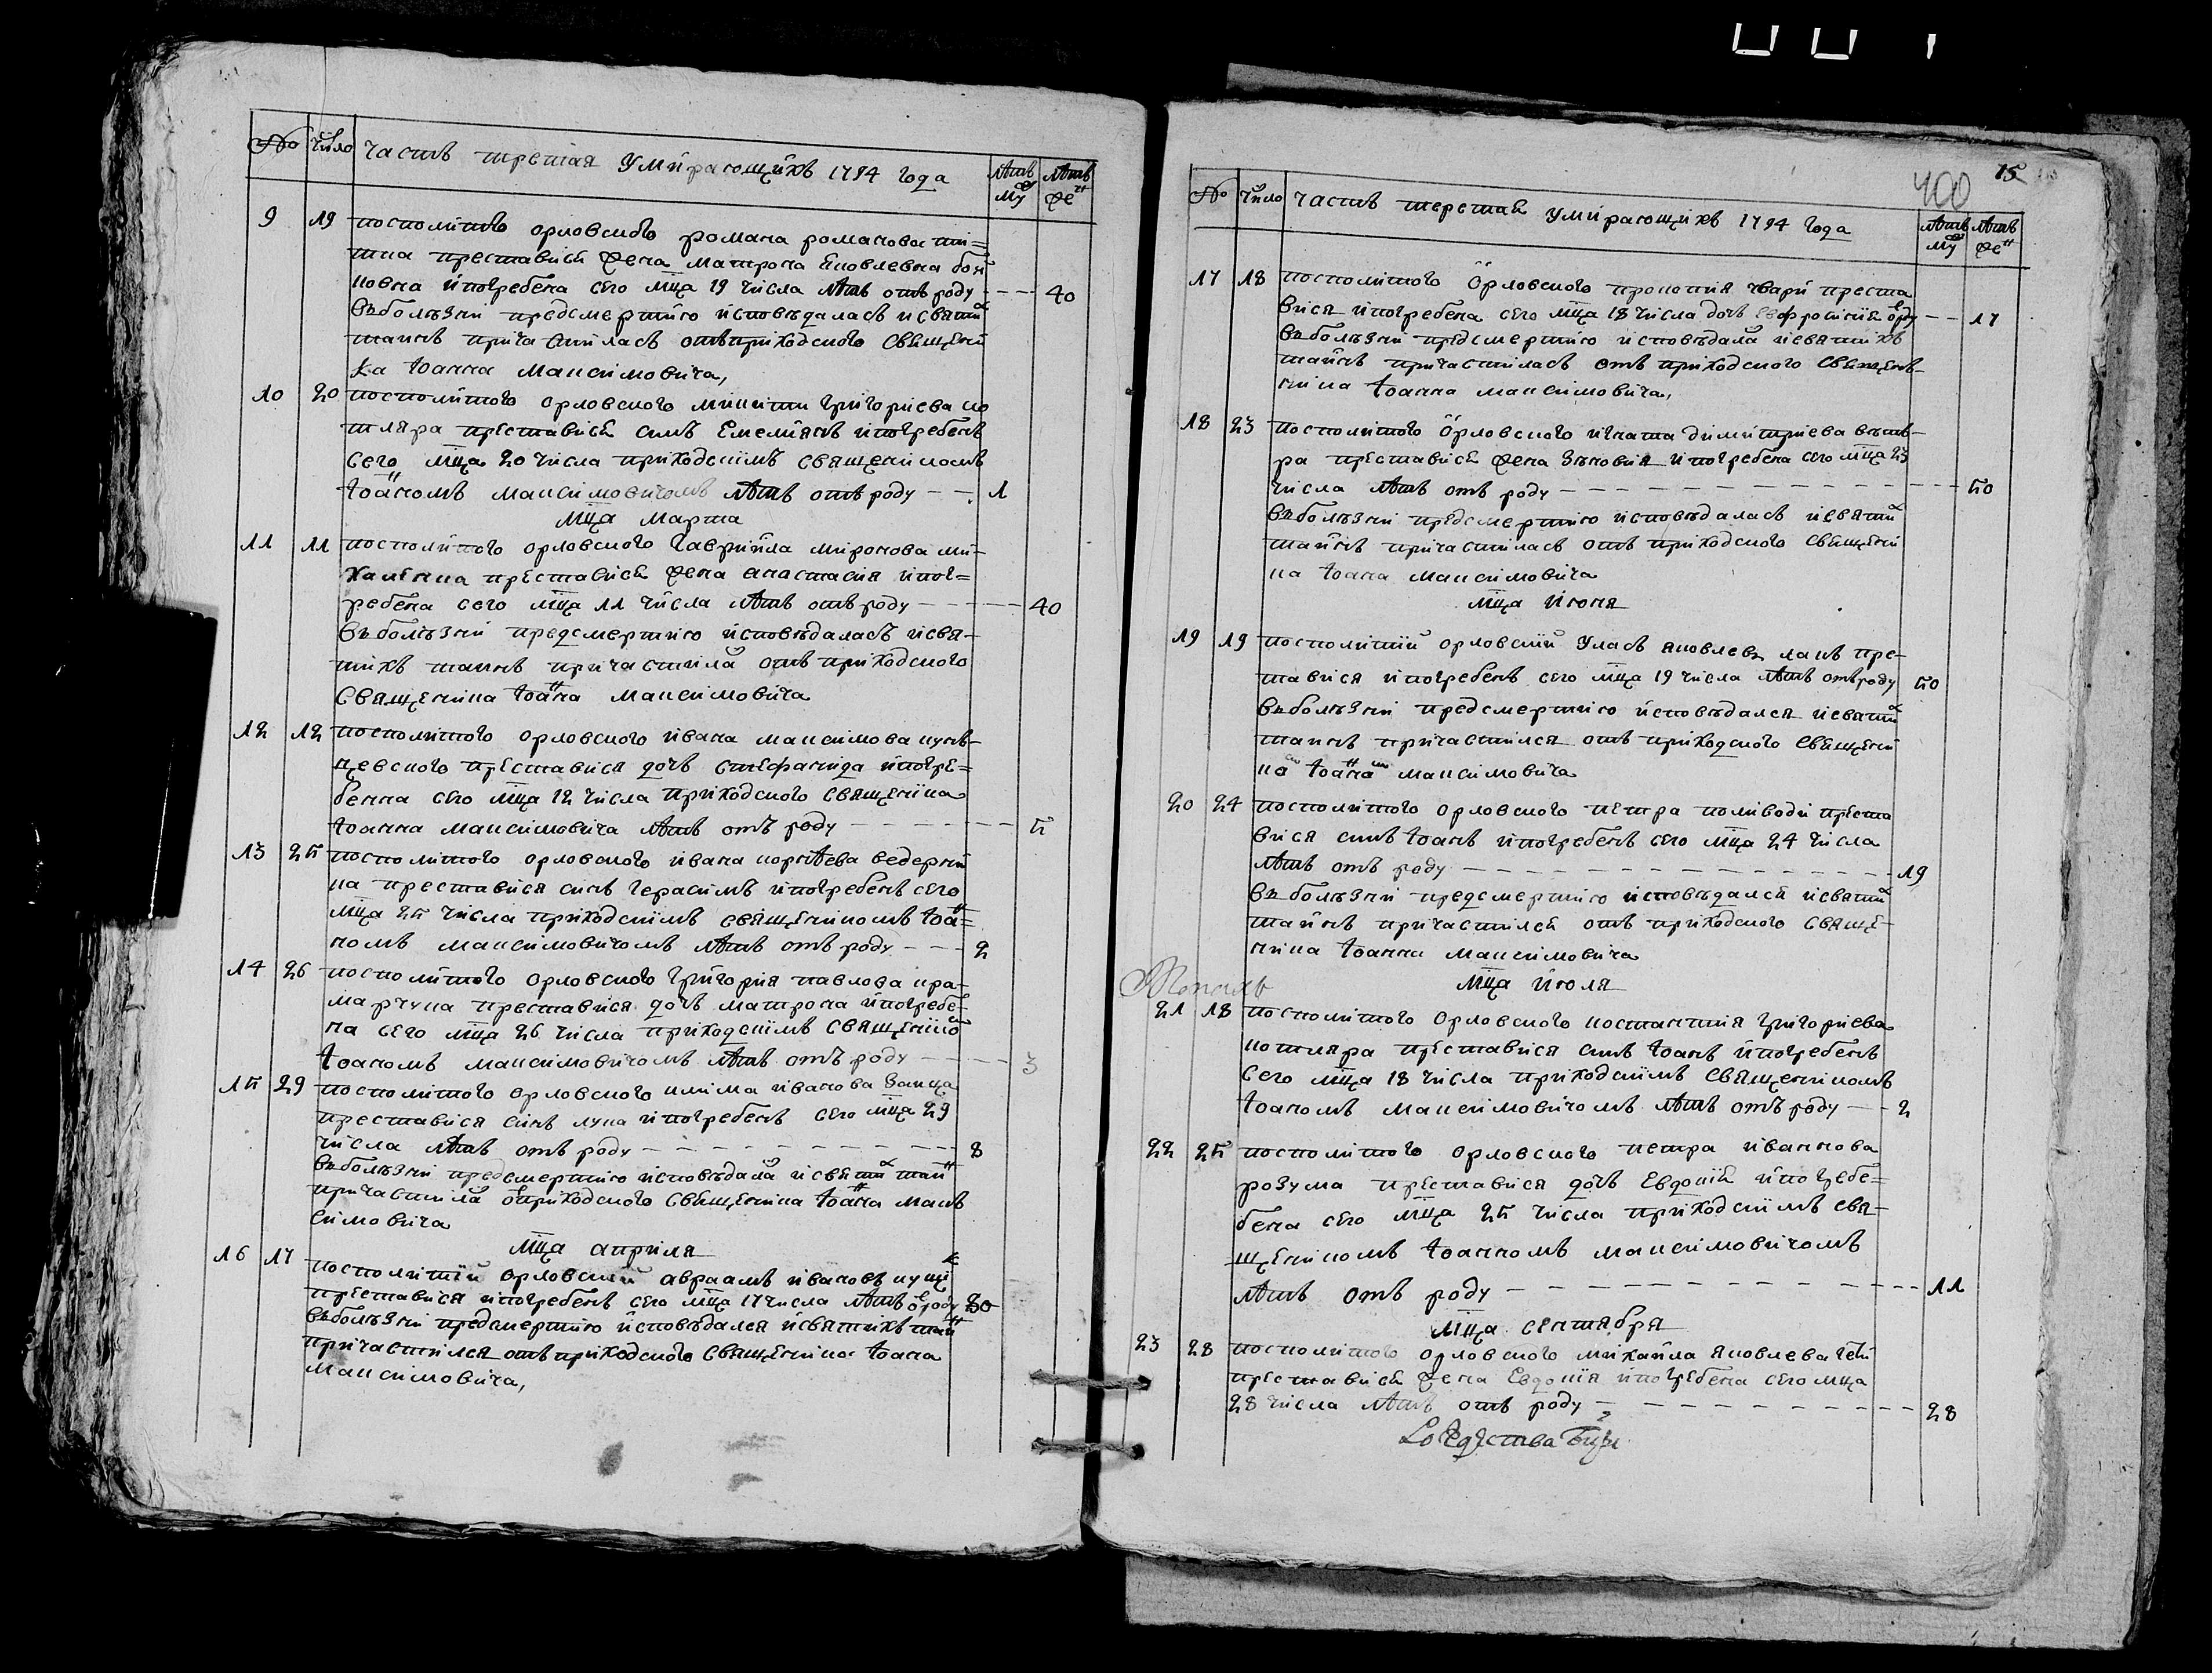 № число Часть третая Умирающихъ 1794 года лѣтъ му лѣтъ же
9 19 посполитого орловского романа романова
преставися жена матрона яковлевна
погребена сего мца 19 числа лѣтъ отъ роду - - - 40
въболѣзни предсмертною исповѣдалась исвяти
таинъ причастилась отъ приходского священи
ка Іоанна Максимовича,
10 20 посполитого орловского микити григориева ко
тляра преставися синъ Емелианъ ипогребенъ
сего мца 20 числа приходскимъ священикомъ
Іоаномъ Максимовичомъ лѣтъ отъ роду - - 1
мца марта
11 11 посполитого орловского гавриила миронова ми-
преставися жена анастасия ипог=
ребена сего мца 11 числа лѣтъ отъ роду - - - 40
въболѣзни предсмертною исповѣдалась исвя-
тихъ таинъ причастила отъ приходского
священика Іоана Максимовича
12 12 посполитого орловского ивана максимова
преставися дочь стефанида ипогре=
бенна сего мца 12 числа приходского священика
Іоанна максимовича лѣтъ отъ роду - - - 5
13 25 посполитого орловского ивана корнѣева ведерни
ка преставися синъ герасимъ ипогребенъ сего
мца 25 числа приходскимъ священикомъ Іоа=
номъ максимовичомъ лѣтъ отъ роду - - - 2
14 26 посполитого орловского григория павлова кра-
марчука преставися дочь матрона ипогребе
на сего мца 26 числа приходскимъ священико
Іоаномъ максимовичомъ лѣтъ отъ роду - - - 3
15 29 посполитого орловского клима иванова заица
преставися синъ лука ипогребенъ сего мца 29
числа лѣтъ отъ роду - - - 8
въболѣзни предсмертною исповѣдала исвяти таи
причастила о приходского священика Іоана макъ
симовича
мца априля
16 17 посполитий орловский авраамъ ивановъ
преставися ипогребенъ сего мца 17 числа лѣтъ о роду 80
въболѣзни предсмертною исповѣдался исвятихъ таи
причастился отъ приходского священика Іоана
максимовича,
400 15
№ число часть теретая умирающихъ 1794 года лѣтъ му лѣтъ же
17 18 посполитого орловского прокопия преста
вися ипогребена сего мца 18 числа дочь евфросиния о роду - - 17
въболѣзни предсмертною исповѣдала исвятихъ
таинъ причастилась отъ приходского священ-
ника Іоанна максимовича,
18 23 посполитого орловского игната димитриева
ра преставися жена зѣновия ипогребена сего мца 23
числа лѣтъ отъ роду - - - 50
въболѣзни предсмертною исповѣдалась исвяти
таинъ причастилась отъ приходского священи
ка Іоана максимовича
мца июня
19 19 посполитий орловский Уласъ яковлевъ пре-
тавися ипогребенъ сего мца 19 числа лѣтъ отъ роду 50
въболѣзни предсмертною исповѣдался исвяти
таинъ причастился отъ приходского священи
ка Іоана максимовича
20 24 посполитого орловского петра поливоди преста
вися синъ Іоанъ ипогребенъ сего мца 24 числа
лѣтъ отъ роду - - - 19
въболѣзни предсмертною исповѣдался исвяти
таинъ причастился отъ приходского свяще-
ника Іоанна максимовича
мца июля
21 18 посполитого орловского григориева
котляра преставися синъ Іоанъ ипогребенъ
сего мца 18 числа приходскимъ священикомъ
Іоаномъ максимовичомъ лѣтъ отъ роду - - 2
22 25 посполитого орловского петра иваннова
розума преставися дочь Евдокия ипогребе=
бена сего мца 25 числа приходскимъ свя-
щеникомъ Іоанномъ максимовичомъ
лѣтъ отъ роду - - - 11
мца сентября
23 28 посполитого орловского михаила яковлева
преставися жена Евдокия ипогребена сего мца
28 числа лѣтъ отъ роду - - - 28